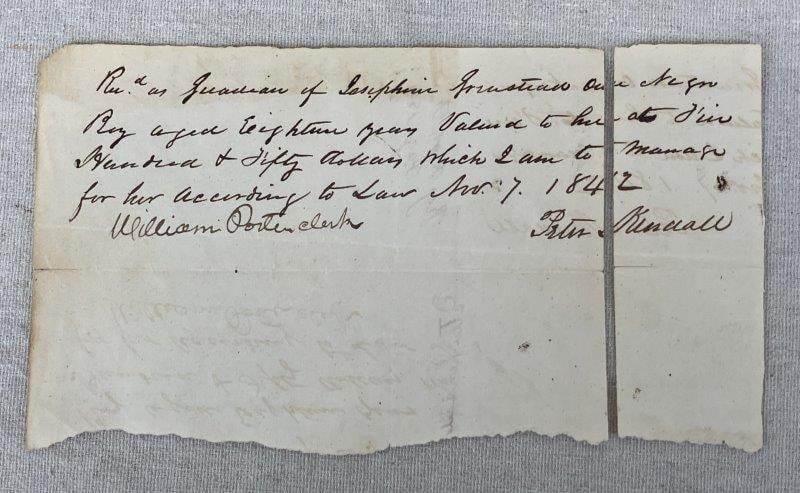 Rec.d as Guardian of Josephine Grinstead One Negro
Boy aged Eighteen years Valued to her at Five
Hundred & Fifty dollars which I am to manage
for her According to Law Nov. 7. 1842
William Porter clerk Peter Kendall